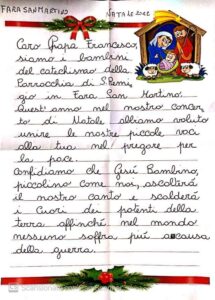 FARA SAN MARTINO NATALE 2022
Caro Papa Francesco,
siamo i bambini
del catechismo della
Parrocchia di S. Remi,
gio in Fara San Martino.
Quest'anno nel nostro concer,
to di Natale abbiamo voluto
unire le nostre piccole voci
alla tua nel pregare per
la pace.
Confidiamo che Gesù Bambino,
piccolino come noi, ascolterà
il nostro canto e scalderà
i cuori dei potenti della
terra affinché nel mondo
nessuno soffra più a causa
della guerra.